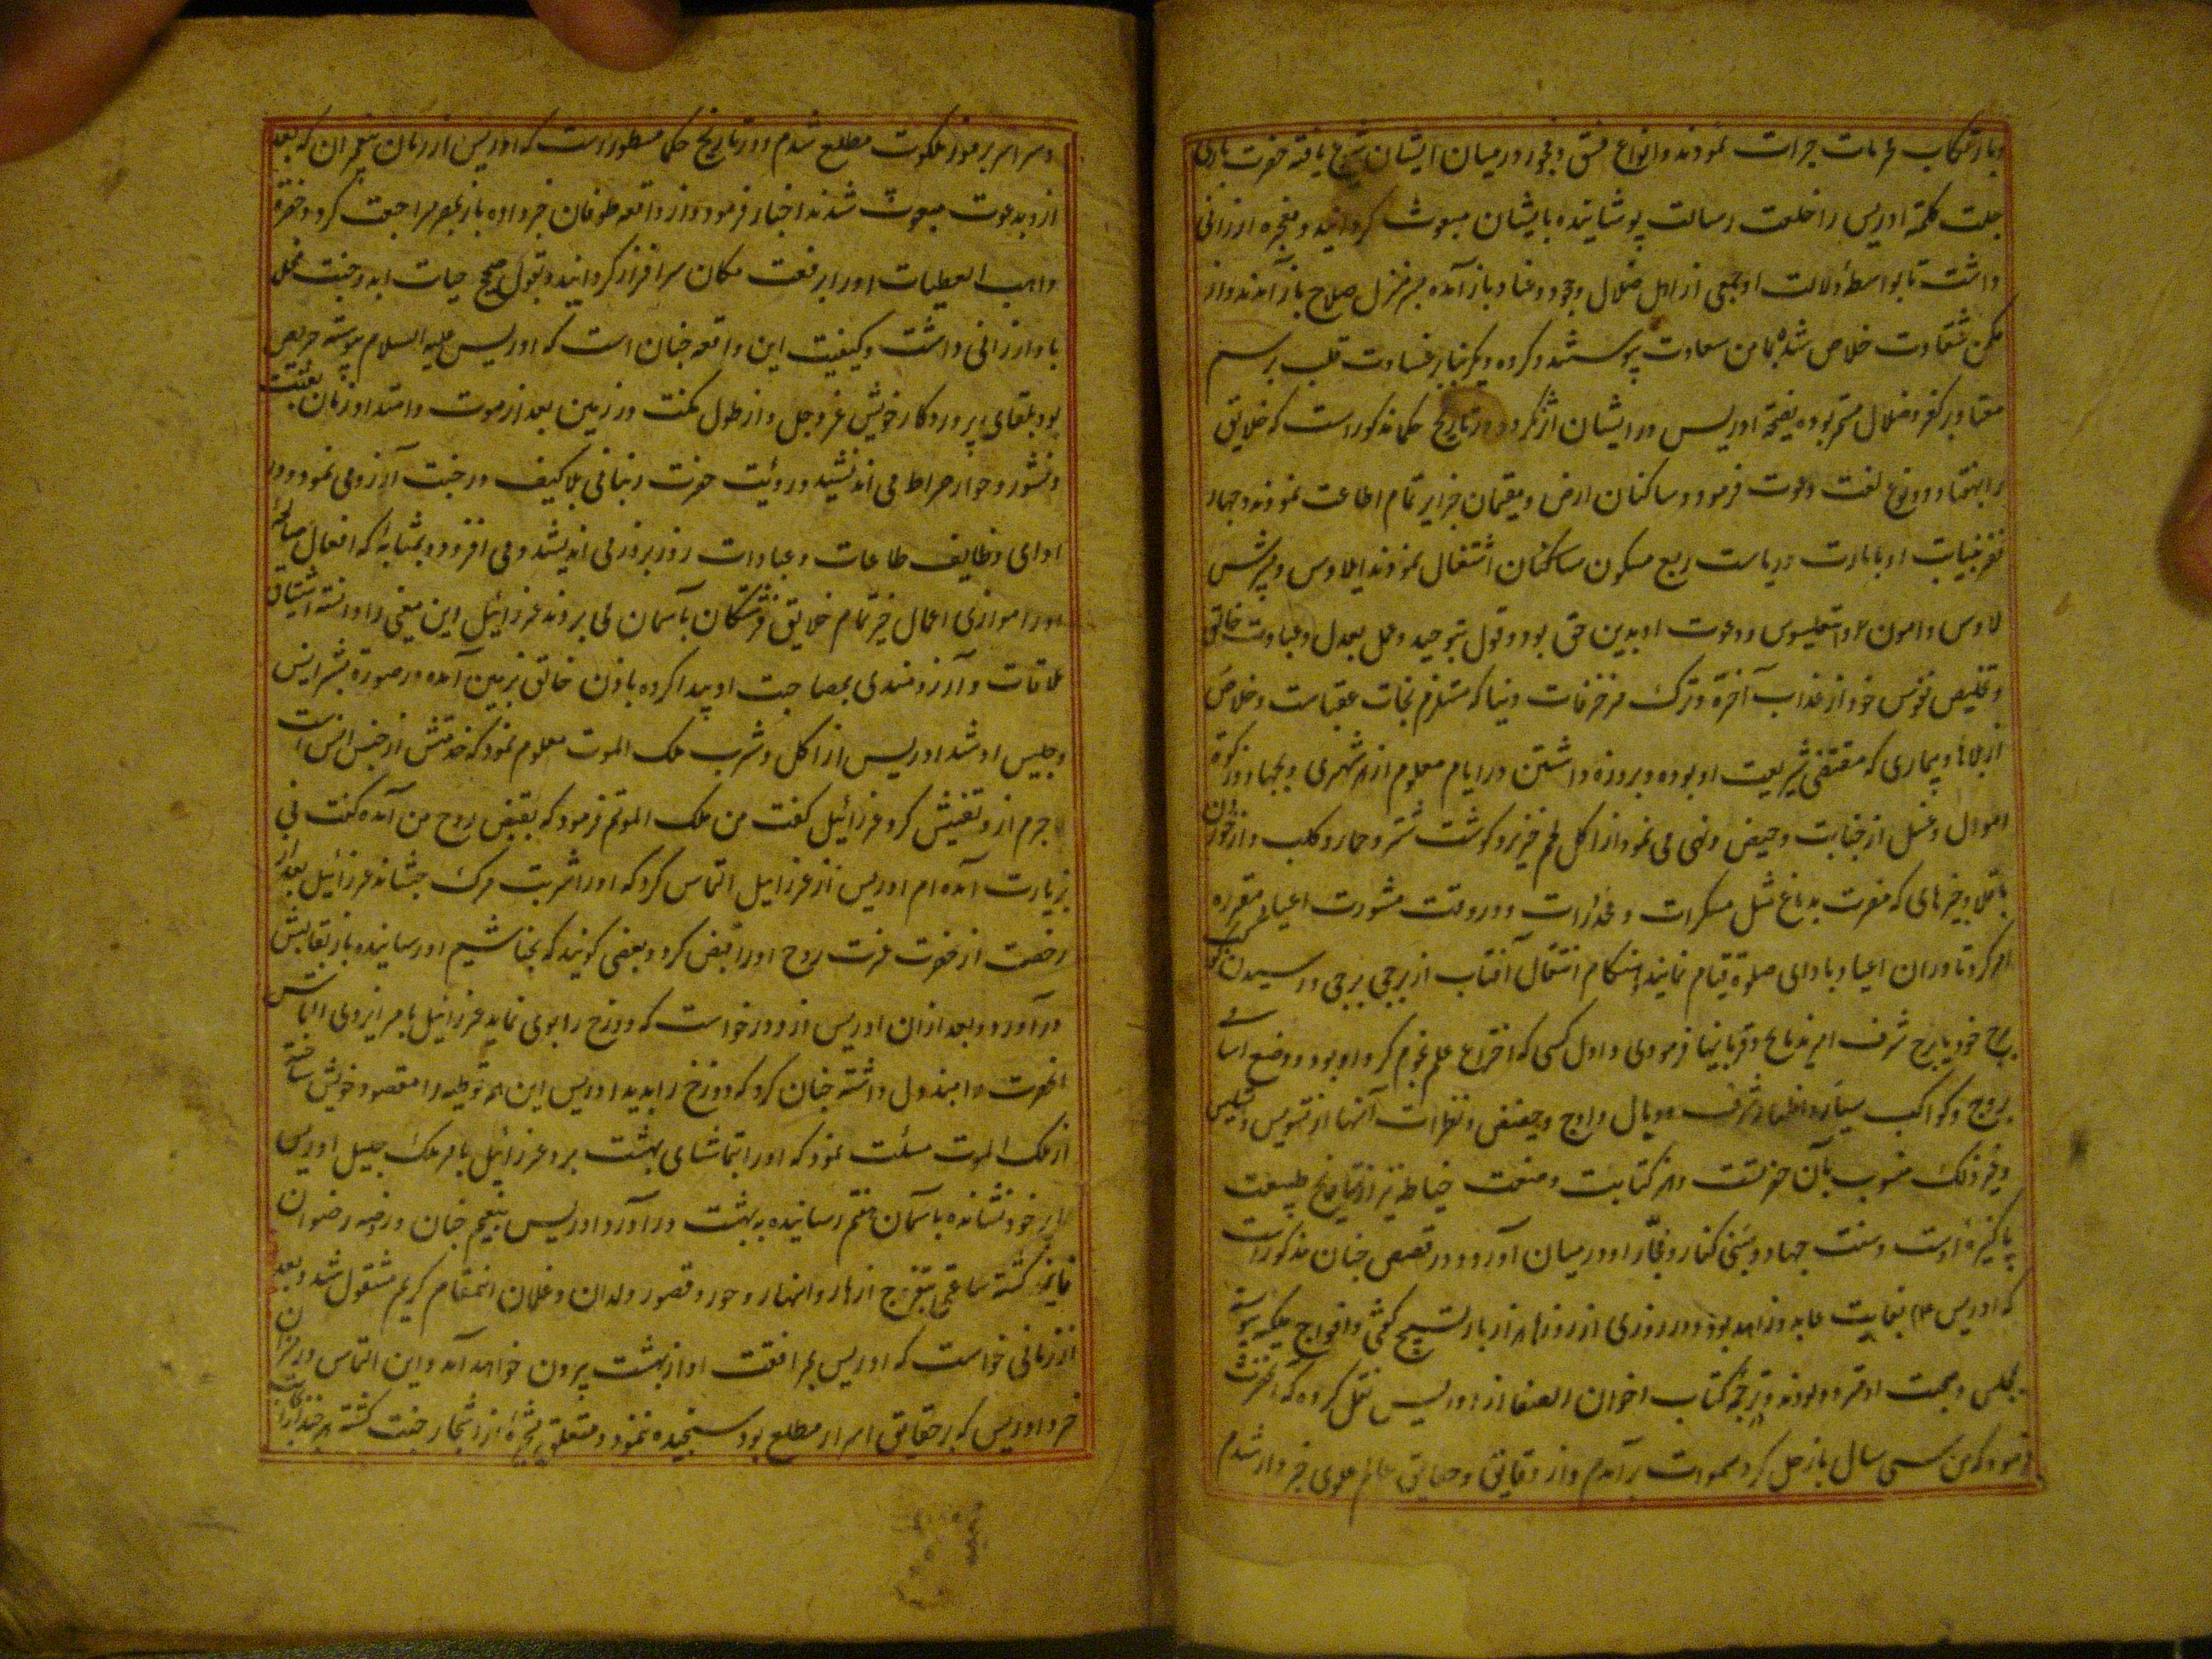 و بارتکاب محرمات جرات نمودند و انواع فسق و فجور در میان ایشان شیوع یافته حضرت باری
جلت کلمته ادریس را خلعت رسالت پوشانیده بایشان مبعوث گردانید و معجزه ارزانی
داشت تا بواسطه دلالت او جمعی از اهل ضلال و جحود و عناد باز آمده بسر منزل صلاح باز آمدند و از
مکمن شقاوت خلاص شده بمامن سعادت پیوستند و گروه دیگر بنابر قساوت قلب بر رسم
معتاد بر کفر و ضلال مستمر بوده نصیحت ادریس در ایشان اثر نکرد و در تاریخ حکما مذکور است که خلایق
را بهفتاد و دو نوع لغت دعوت فرمود و ساکنان ارض و مقیمان جزایر تمام اطاعت نمودند و چهار
نفر بنیابت او بامارت و ریاست ربع مسکون ساکنان اشتغال نمودند ایلاوس و پرش
لاوس و امون و اسقلیبوس و دعوت او بدین حق بود و قول بتوحید و عمل بعدل و عبادت خالق
و تخلیص نفوس خود از عذاب آخرة و ترک مزخرفات دنیا که مستلزم نجات عقباست و خلاص
از بلاها و بیماری که مقتضی شریعت او بوده و بروزه داشتن در ایام معلوم از هر شهری و بجهاد و زکوة
اموال و غسل از جنابت و حیض و نهی می نمود از اکل لحم خنزیر و گوشت شتر و حمار و کلب و از خوردن
باقلا و چیزهای که مضرت بدماغ مثل مسکرات و مخدرات و در وقت مشورت اعیاد مقرره
امر کرد تا در ان اعیاد بادای صلوة قیام نمایند هنگام انتقال آفتاب از برجی ببرجی و رسیدن کواکب
ببرج خود یا برج شرف امر بذبایح و قربانیها فرمودی و اول کسی که اختراع علم نجوم کرد او بود و وضع اسامی
بروج و کواکب سیاره و اظهار شرف و وبال و اوج و حضیض و نظرات آنها از تثلیث و تسدیس
و غیر ذلک منسوب بآن حضرتست و هنر کتابت و صنعت خیاطه نیز از نتایج طبیعت
پاکیزه اوست و سنت جهاد و سبی کفار و فجار او در میان آورد و در قصص چنان مذکور است
که ادریس ع بغایت عابد و زاهد بود و در روزی از روزها هزار بار تسبیح گفتی و افواج ملیکه پیوسته
بمجلس و صحبت او تردد نمودند و ترجمه کتاب اخوان الصفا از ادریس نقل کرده که آنحضرت
فرمود که من سی سال بازحل گرد سموات برآمدم و از دقایق و حقایق عالم علوی خبردار شدم
و سراسر بر رموز ملکوت مطلع شدم و در تاریخ حکما مسطور است که ادریس از زمان پیغمبران که بعد
از و بدعوت مبعوث شدند اخبار فرمود و از واقعه طوفان خبر داده باز بمصر مراجعت کرد و حضرة
واهب العطیات او را برفعت مکان سرافراز گردانید و بقول صحیح حیات ابد و جنت مخلد
باو ارزانی داشت و کیفیت این واقعه چنان است که ادریس علیه السلام پیوسته حریص
بود بلقای پروردگار خویش عز و جل و از طول مکث در زمین بعد از موت و امتداد زمان بعثت
و نشور و جواز صراط می اندیشید و رؤیت حضرت ربانی بلا کیف در جنت آرزو می نمود و در
ادای وظایف طاعات و عبادات روز بروز می اندیشید و می افزود و بمثابه که افعال صالحه
او را موازی اعمال خیر تمام خلایق فرشتگان بآسمان می بردند عزرائیل این معنی را دانسته اشتیاق
ملاقات و آرزومندی بمصاحبت او پیدا کرده باذن خالق بزمین آمده در صورة بشر انیس
و جلیس او شد ادریس از اکل و شرب ملک الموت معلوم نمود که خدمتش از جنس انس است
لا جرم از و تفتیش کرد عزرائیل گفت من ملک الموتم فرمود که بقبض روح من آمده گفت نی
بزیارت آمده ام ادریس از عزرائیل التماس کرد که او را شربت مرگ چشاند عزرائیل بعد از
رخصت از حضرت عزت روح او را قبض کرد و بعضی گویند که بخیاشیم او رسانیده باز بقالبش
در آورد و بعد از ان ادریس از و درخواست که دوزخ را بوی نماید عزرائیل بامر ایزدی التماس
آنحضرت را مبذول داشته چنان کرد که دوزخ را بدید ادریس این هم توطیه را مقصود خویش ساخته
از ملک الموت مسئلت نمود که او را بتماشای بهشت برد عزرائیل بامر ملک جلیل ادریس
بر پر خود نشانده باسمان هفتم رسانیده به بهشت در آورد و ادریس بنعیم جنان و روضه رضوان
فایز گشته ساعتی بتفرج ازهار و انهار و حور و قصور و ولدان و غلمان آنمقام کریم مشغول شد و بعد
از زمانی خواست که ادریس بمرافقت او از بهشت بیرون خواهد آمد و این التماس در میزان
خرد ادریس که بر حقایق اسرار مطلع بود سنجیده ننمود و متعلق بشجره از اشجار جنت گشته هر چند عزرائیل